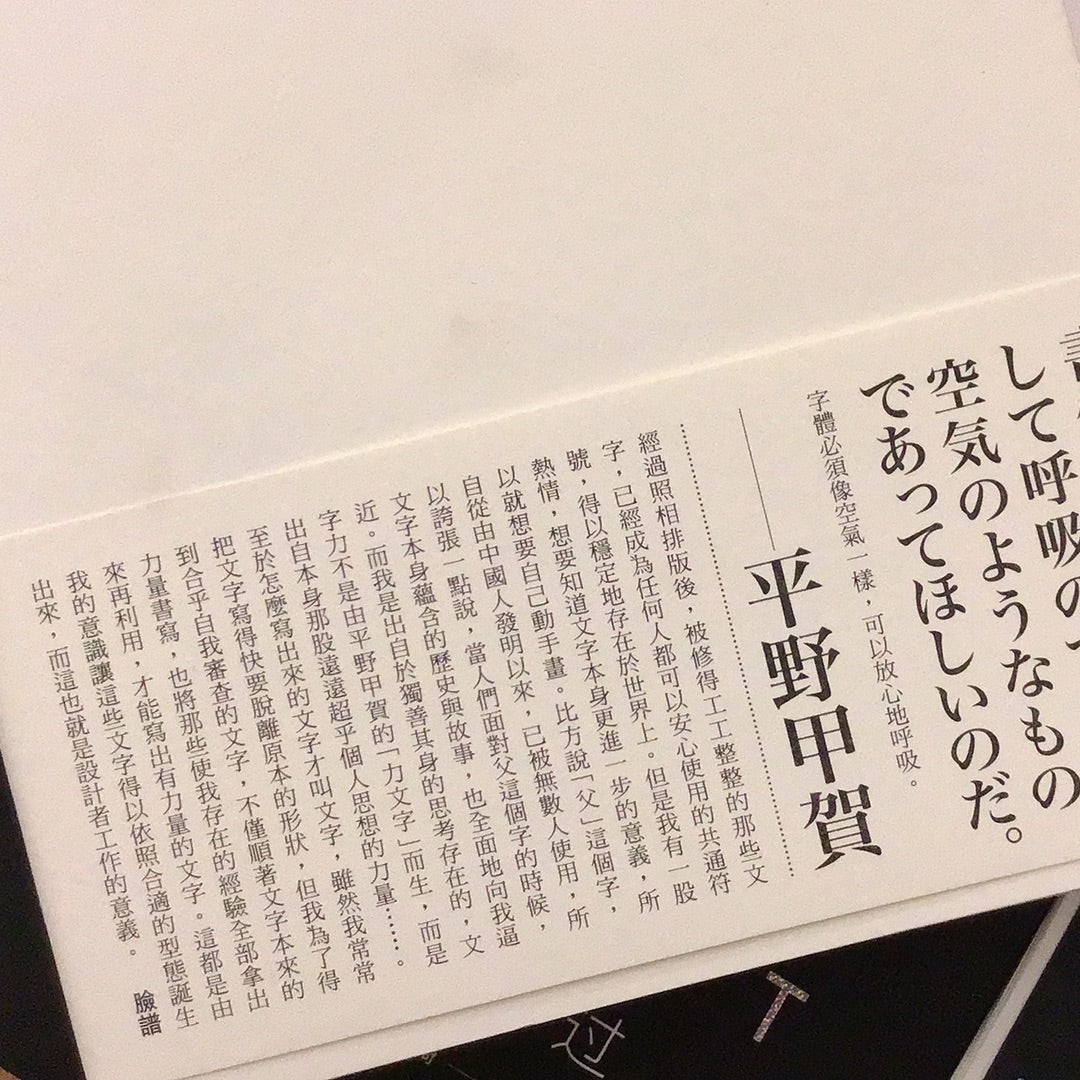 して呼吸の
空気のようなもの
であってほしいのだ。
字體必須像空氣一樣，可以放心地呼吸。
——平野甲賀
經過照相排版後，被修得工工整整的那些文
字，已經成為任何人都可以安心使用的共通符
號，得以穩定地存在於世界上。但是我有一股
熱情，想要知道文字本身更進一步的意義，所
以就想要自己動手畫。比方說「父」這個字，
自從由中國人發明以來，已被無數人使用，所
以誇張一點說，當人們面對父這個字的時候，
文字本身蘊含的歷史與故事，也全面地向我逼
近。而我是出自於獨善其身的思考存在的，文
字力不是由平野甲賀的「力文字」而生，而是
出自本身那股遠遠超乎個人思想的力量……。
至於怎麼寫出來的文字才叫文字，雖然我常常
把文字寫得快要脫離原本的形狀，但我為了得
到合乎自我審查的文字，不僅順著文字本來的
力量書寫，也將那些使我存在的經驗全部拿出
來再利用，才能寫出有力量的文字。這都是由
我的意識讓這些文字得以依照合適的型態誕生
出來，而這也就是設計者工作的意義。
臉譜
T